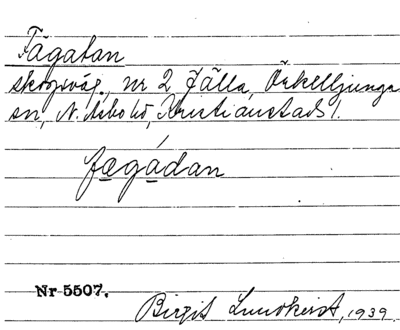 Fägatan
skogsväg, nr 2 Fälla, Örkelljunga
sn, N. Åsbo hd, Kristianstads l.
fægádan
Nr 5507.
Birgit Lundkvist, 1939.